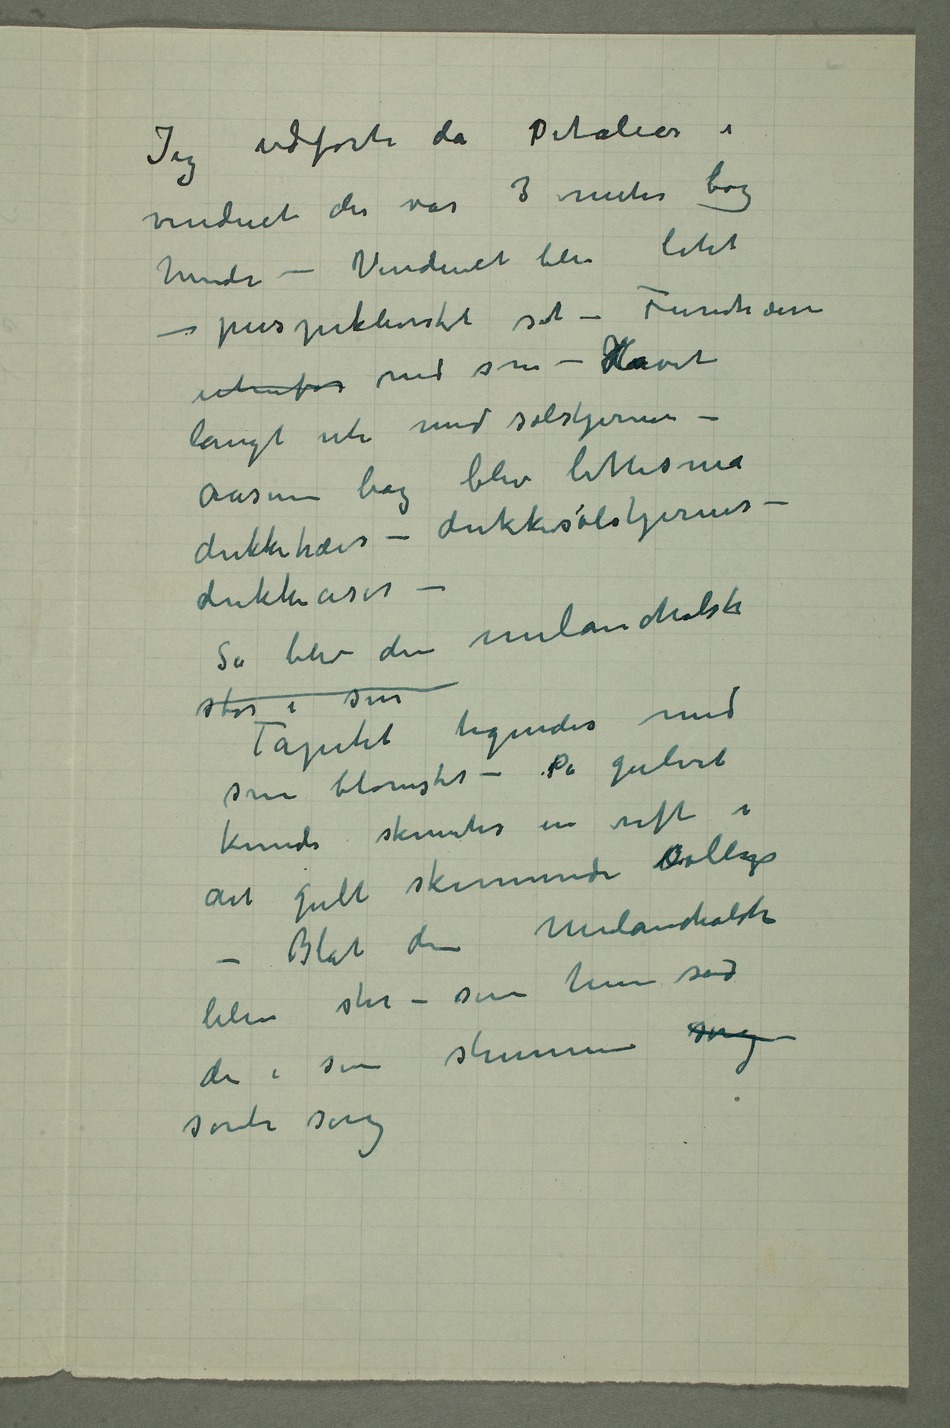 Jeg udførte da Detalier i
vinduet der var 3 meter bag
hende – Vinduet blev litet
– perspektivisk set – Furutræerne
udenfor med sne – Havet
langt ute med solstjerner –
aasene bag blev littesmå
dukketrær – dukkesolstjerner –
dukkeåser –
Så blev den melankolske
stor i sin
Tapetet tegnedes med
sine blomster – På gulvet
kunde skimtes en rift i
det gult skinnende
– Blot den Melankolske
blev stor – som hun sad
der i sin stumme sorg –
sorte sorg